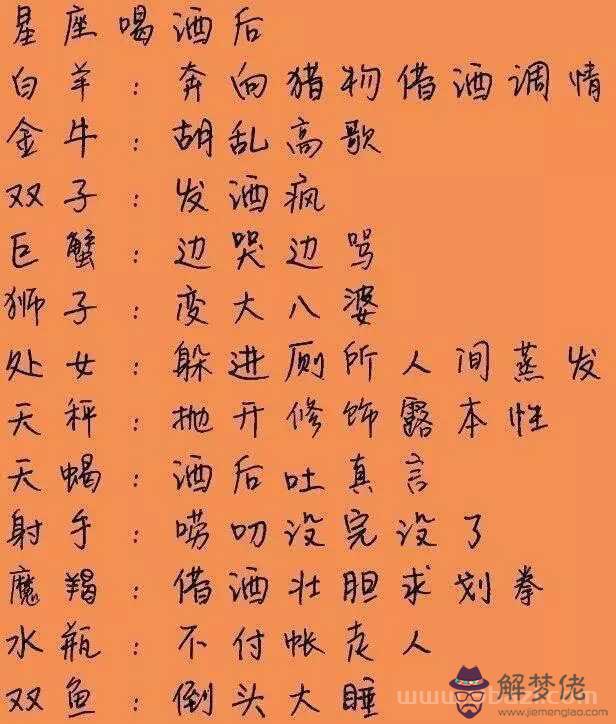 星座喝酒后
白羊：奔向猎物借酒调情
金牛：胡乱高歌
双子：发酒疯
巨蟹：边哭边骂
狮子：变大八婆
处女：躲进厕所人间蒸发
天秤：抛开修饰露本性
天蝎：酒后吐真言
射手：唠叨没完没了
魔羯：借酒壮胆求划拳
水瓶：不付帐走人
双鱼：倒头大睡
解梦佬
www.jiemenglao.com